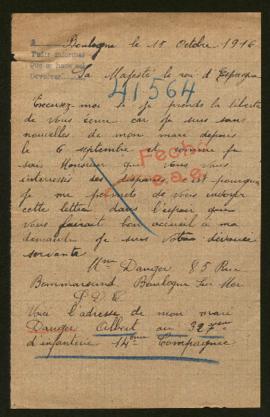 Boulogne le 18 Octobre 1916
Pedir informes
Sa Majesté le roi d'Espagne
41564
Excusez moi si je prends la liberté
de vous écrire car je suis sans
nouvelles de mon mari depuis
le 6 septembre et comme je
sais Monsieur que vous vous
interessés des disparus c'est pourquoi
je me permets de vous envoyer
cette lettre dans l'espoir que
vous feriez bon accueil à ma
demande je suis votre dévouée
servante
Mme Danger 85 Rue
Boulogne sur Mer
P.D.C
Voici l'adresse de mon mari
Danger Albert au 327eme
d'infanterie 14eme Compagnie